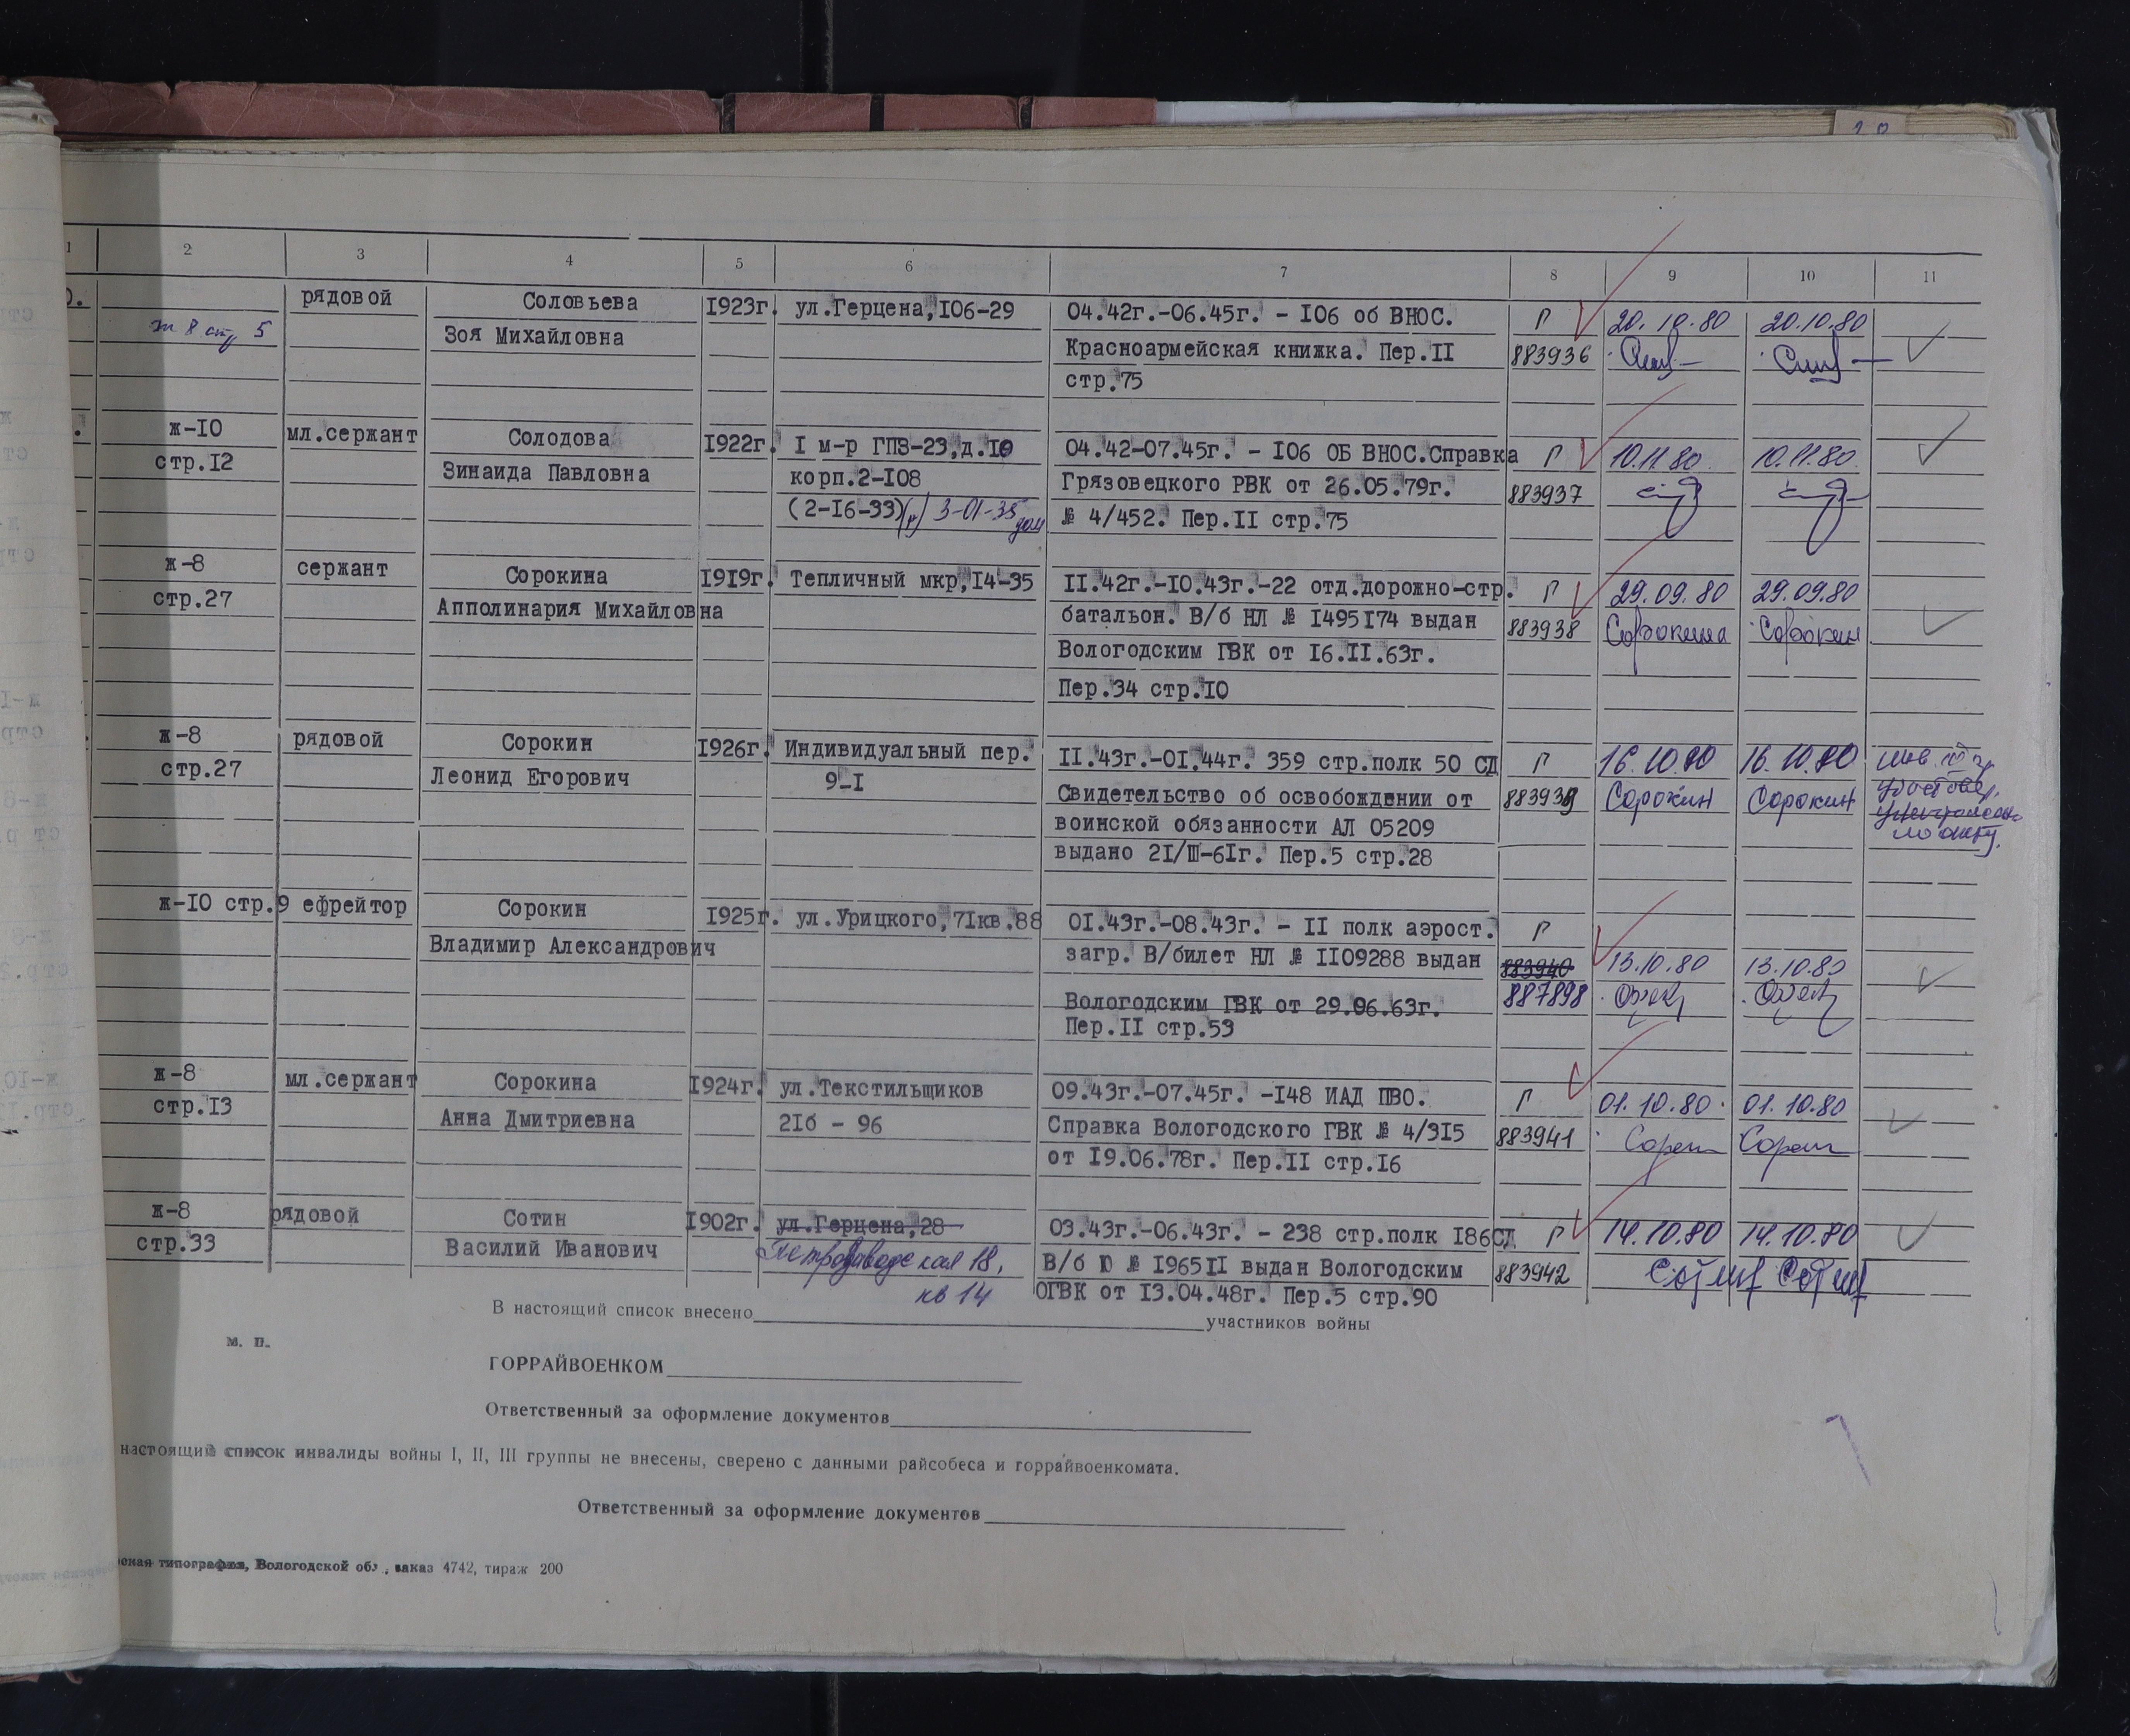 1 2 3 4 5 6 7 8 9 10 11
рядовой Соловьева 1923г. ул.Герцена,106-29 04.42г.-06.45г. - 106 об ВНОС. Г 20.10.80 20.10.80
ж 8 стр 5 Зоя Михайловна Красноармейская книжка. Пер.II 883936
стр.75
ж-10 мл.сержант Солодова 1922г. I м-р ГПЗ-23,д.10 04.42-07.45г. - 106 ОБ ВНОС.Справка Г 10.11.80 10.11.80
стр.12 Зинаида Павловна корп.2-108 Грязовецкого РВК от 26.05.79г. 883937
(2-16-33) (р) 3-01-35 дом № 4/452. Пер.II стр.75
ж-8 сержант Сорокина 1919г. Тепличный мкр,14-35 11.42г.-10.43г.-22 отд.дорожно-стр. Г 29.09.80 29.09.80
стр.27 Апполинария Михайловна батальон. В/б НЛ № 1495174 выдан 883938 Сорокина Сорокин
Вологодским ГВК от 16.11.63г.
Пер.34 стр.10
ж-8 рядовой Сорокин 1926г. Индивидуальный пер. 11.43г.-01.44г. 359 стр.полк 50 СД Г 16.10.80 16.10.80
стр.27 Леонид Егорович 9-1 Свидетельство об освобождении от 883939 Сорокин Сорокин
воинской обязанности АЛ 05209
выдано 21/III-61г. Пер.5 стр.28
ж-10 стр.9 ефрейтор Сорокин 1925г. ул.Урицкого,71кв.88 01.43г.-08.43г. - 11 полк аэрост. Г
Владимир Александрович загр. В/билет НЛ № 1109288 выдан 883940 13.10.80 13.10.80
Вологодским ГВК от 29.06.63г. 887898
Пер.II стр.53
ж-8 мл.сержант Сорокина 1924г. ул.Текстильщиков 09.43г.-07.45г. -148 ИАД ПВО. Г 01.10.80 01.10.80
стр.13 Анна Дмитриевна 21б - 96 Справка Вологодского ГВК № 4/315 883941
от 19.06.78г. Пер.II стр.16
ж-8 рядовой Сотин 1902г. ул.Герцена,28 03.43г.-06.43г. - 238 стр.полк 186СД Г 14.10.80 14.10.80
стр.33 Василий Иванович Петрозаводская 18, В/б Ю № 196511 выдан Вологодским 883942
кв 14 ОГВК от 13.04.48г. Пер.5 стр.90
В настоящий список внесено участников войны
м. п.
ГОРРАЙВОЕНКОМ
Ответственный за оформление документов
настоящий список инвалиды войны I, II, III группы не внесены, сверено с данными райсобеса и горрайвоенкомата.
Ответственный за оформление документов
типография, Вологодской обл., заказ 4742, тираж 200